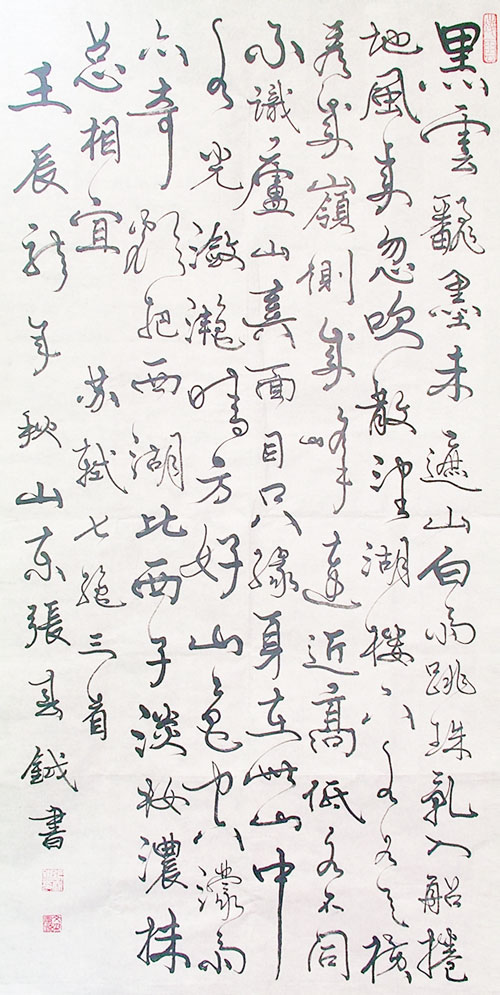 黑雲飜墨未遮山白雨跳珠亂入船捲
地風来忽吹散望湖樓下水如天横
看成嶺側成峰遠近高低各不同
不識廬山真面目只緣身在此山中
水光瀲灩晴方好山色空濛雨
亦奇欲把西湖比西子淡妝濃抹
總相宜 苏軾七绝三首
壬辰龍年秋山东張春鋮書